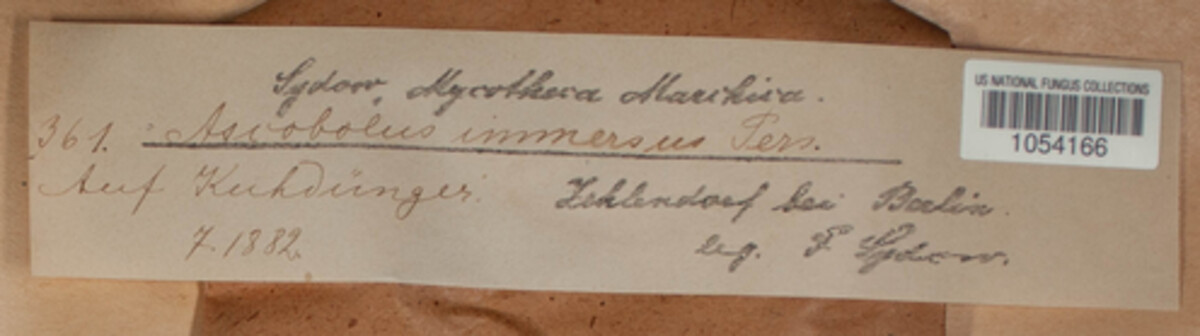 Sydow, Mycotheca Marchica.
361. Ascobolus immersus Pers.
Auf Kuhdünger. Zehlendorf bei Berlin.
7. 1882. leg. P. Sydow.
US NATIONAL FUNGUS COLLECTIONS
1054166